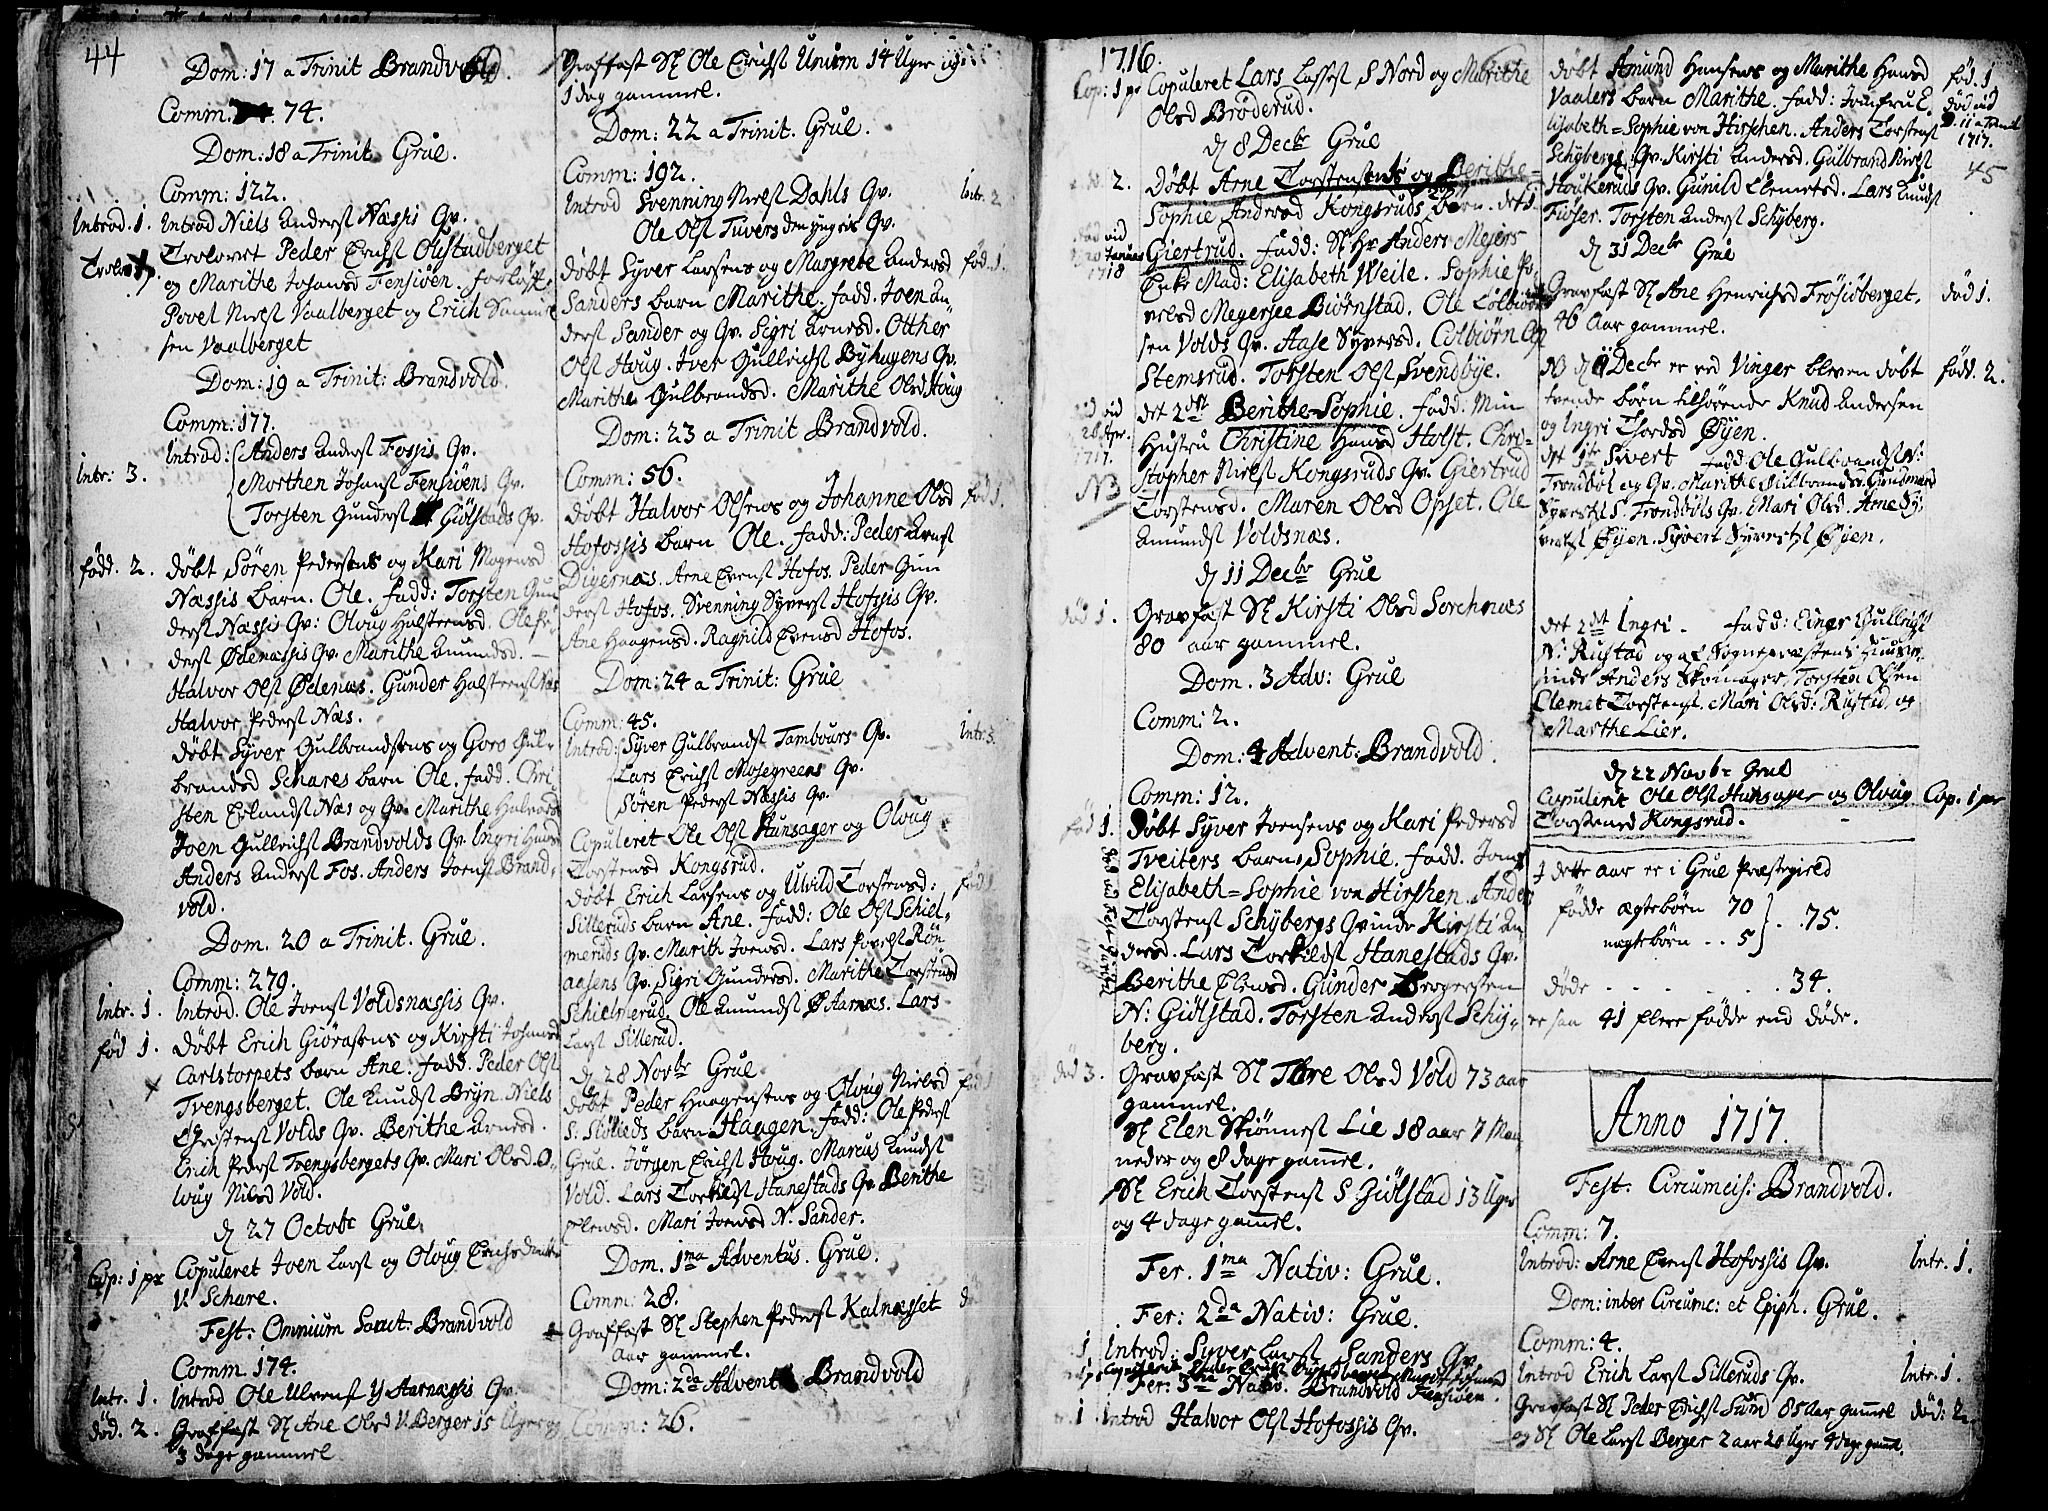 44
Dom: 17 a Trinit Brandvold.
Comm: 74.
Dom: 18 a Trinit Grue.
Comm: 122.
Introd. 1. Introd Niels Anderst Næssis Qv.
Trolovet Peder Erichst Olstadberget
og Marithe Johansd Fensiøen. forløft:
Povel Nielst Vaalberget og Erich Samuel
sen Vaalberget
Dom: 19 a Trinit: Brandvold.
Comm: 177.
Introd: Anders Anderst Fossis Qv.
Intr: 3. Morthen Johanst Fensiøens Qv.
Torsten Gunderst Giølstads Qv.
född. 2. døbt Søren Pederstens og Kari Mogensd
Næssis barn. Ole. fadd: Torsten Gun
derst Næssis Qv: Oloug Halsteensd. Ole Pe-
derst Ødenæssis Qv. Marithe Amundsd. —
Halvor Olst Ødenæs. Gunder Halsteenst Næs
Halvor Pederst Næs.
døbt Syver Gulbrandsens og Goro Gul-
brandsd Schares barn Ole. fadd. Chri
sten Erlandst Næs og Qv. Marithe Halvorsd
Joen Gullichst Brandvolds Qv. Ingri Hansd
Anders Anderst Fos. Anders Joenst Brand-
vold.
Dom. 20 a Trinit. Grue.
Comm: 279.
Intr. 1. Introd. Ole Joenst Voldsnæssis Qv.
fød 1. døbt Erich Giøranstens og Kirsti Johansd
Carlstorpets barn Ane. fadd. Peder Olst
Tvengsberget. Ole Knudst Bryn. Niels
Christenst Volds Qv. Berithe Arnesd.
Erich Pederst Tvengsbergets Qv. Mari Olsd. O-
loug Nilsd Vold.
d 27 Octobr Grue.
Cop: 1 pr Copuleret Joen Larst og Oloug Erichsdatter
V. Schare.
Fest: Omnium Sanct: Brandvold
Comm. 174.
Intr. 1. Introd Ole Ulvenst Y Aarnæssis Qv.
død. 2. Graffæst Sl Ane Olsd V. Berger 15 Uger og
3 dage gammel
Graffæst Sl Ole Erichst Unum 14 Uger og
1 dag gammel.
Dom: 22 a Trinit. Grue.
Comm: 192.
Introd Svenning Nielst Dahls Qv. Intr. 2.
Ole Olst Tuvers den yngris Qv.
døbt Syver Larsens og Margrete Andersd fød. 1.
Sanders barn Marithe. fadd. Joen An-
derst Sander og Qv. Sigri Arnesd. Otther
Olst Houg. Iver Gullichst Byhagens Qv.
Marithe Gulbrandsd. Marithe Olsd Houg
Dom: 23 a Trinit Brandvold.
Comm: 56.
døbt Halvor Olsens og Johanne Olsd fød 1.
Hofossis barn Ole. fadd: Peder Arnst
Digernæs. Arne Evenst Hofos. Peder Gun
derst Hofos. Svenning Syverst Hofossis Qv.
Ane Haagensd. Ragnild Evensd Hofos.
Dom: 24 a Trinit: Grue
Comm: 45.
Introd: Syver Gulbrandst Tambours Qv. Intr 3.
Lars Erichst Mosegreens Qv.
Søren Pederst Næssis Qv.
Copuleret Ole Olst Hunsager og Oloug
Torstensd Kongsrud.
døbt Erich Larsens og Ulvild Torstensd: fød 1
Silleruds barn Ane. fadd: Ole Olst Schiel-
meruds Qv. Marith Joensd. Lars Povelst Røn
aasens Qv. Sigri Gundersd. Marithe Torstensd
Schielmerud. Ole Amundst Ø Aarnæs. Lars
Larst Sillerud.
d 28 Novbr Grue
døbt Peder Haagenstens og Oloug Nielsd fød 1
S: Skulleds barn Haagen. fadd: Ole Pederst
Grue. Jørgen Erichst Houg. Marcus Knudst
Vold. Lars Torkildst Hanestads Qv Berithe
Elensd. Mari Joensd N. Sander.
Dom. 1ma Adventus. Grue.
Comm: 28.
Graffæst Sl Stephen Pederst Kalnæsset
aar gammel.
Dom: 2da Advent Brandvold
Comm: 26.
1716.
Cop: 1 pr Copuleret Lars Lassest S Nord og Marithe
Olsd Brøderud.
d 8 Decbr Grue
2. Døbt Arne Torstenstens og Berithe-
Sophie Andersd Kongsruds 2 børn. det 1.
Giertrud. fadd: Sl Hr Anders Mejers
1718
Enke Mad: Elisabeth Weile. Sophie Po-
velsd Megersee Biørnstad. Ole Colbiørn
sen Volds Qv. Aase Syversd. Colbiørn Olst
Stemsrud. Torsten Olst Svendbye.
det 2det Berithe-Sophie. fadd: Min
1717.
Hustru Christine Hansd Holst. Chri-
stopher Nielst Kongsruds Qv. Giertrud
NB
Torstensd. Maren Olsd Opset. Ole
Amundst Voldsnæs.
d 11 Decbr Grue
død 1. Gravfæst Sl Kirsti Olsd Sorchnæs
80 aar gammel.
Dom. 3 Adv: Grue
Comm: 2.
Dom: 4 Advent: Brandvold.
Comm: 12.
fød 1. Døbt Syver Joensens og Kari Pedersd
Tveiters barn Sophie. fadd. Jomf
Elisabeth-Sophie von Hirshen. Anders
Torstenst Schybergs Qvinde Kirsti An
dersd. Lars Torkildst Hanestads Qv.
Berithe Elensd. Gunder Bergersen
N: Giølstad. Torsten Anderst Schy-
berg.
død 3. Gravfæst Sl Thore Olsd Vold 73 aar
gammel.
Sl Elen Skiønnest Lie 18 aar 7 Maa
neder og 8 dage gamel.
Sl Erich Torstenst S Giølstad 13 Uger
og 4 dage gamel.
Fer. 1ma Nativ: Grue.
Fer: 2da Nativ: Grue.
1 Introd: Syver Larst Sanders Qv
Fer: 3tia Nativ. Brandvold Fensiøen.
1 Introd Halvor Olst Hofossis Qv.
døbt Amund Hansens og Marithe Hansd fød. 1
Vaalers barn Marithe. fadd: Jomfru E
lisabeth-Sophie von Hirschen. Anders Torstenst
1717.
Schybergs Qv. Kirsti Andersd. Gulbrand Nielst
45
Houkeruds Qv. Gunild Clemetsd. Lars Knudst
Fiøser. Torsten Anderst Schyberg.
d 31 Decbr Grue
Gravfæst Sl Ane Henrichsd Frøsioberget. død 1.
46 Aar gammel.
NB d Decbr er ved Vinger bleven døbt född. 2.
tvende børn tilhørende Knud Andersen
og Ingri Thordsd Øyen.
det 1te Sivert fadd: Ole Gulbrandst N:
Trøndbøl og Qv. Marithe
Syverst S. Trøndbøls Qv. Mari Olsd. Arne Sy-
verst Øyen. Syvert Syverst Øyen.
det 2det Ingri. fadd: Einer Gullichst
N: Rustad og af Sognepræstens Huus
inde Anders Skomager, Torsten Olsen
Clemet Torstenst. Mari Olsd: Rustad, og
Marthe Lier.
d 22 Novbr Grue
Copulerit Ole Olst Hunsager og Oloug Cop. 1 pr
Torstensd Kongsrud.
I dette aar er i Grue Præstegield
födde ægtebørn 70
75.
uægtebørn .. 5
døde . . . . . 34.
er saa 41 flere födde end døde.
Anno 1717.
Fest: Circumcis: Brandvold.
Comm: 7.
Introd: Arne Evenst Hofossis Qv. Intr. 1.
Dom: inter Circumc: et Epiph. Grue.
Comm: 4.
Introd Erich Larst Silleruds Qv. Intr. 1.
Gravfæst Sl Peder Erichst Sum 85 aar gamel død: 2.
og Sl Ole Larst Berger 2 aar 20 Uger 4 dage gamel.